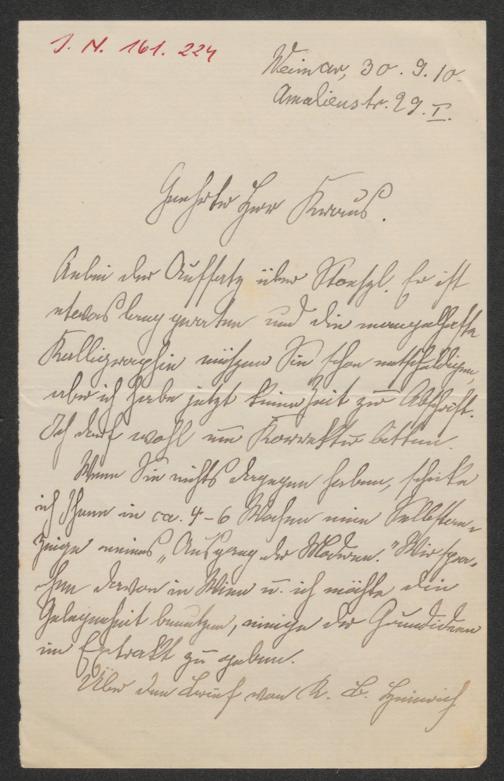 I. N. 161. 224
Weimar, 30. 9. 10.
Amalienstr. 29. I.
Geehrter Herr Kraus.
Anbei der Aufsatz über Stoessl. Er ist
etwas lang geraten und die mangelhafte
Kalligraphie müssen Sie schon entschuldigen,
aber ich habe jetzt keine Zeit zur Abschrift.
Ich darf wohl um Korrektur bitten.
Wenn Sie nichts dagegen haben, schicke
ich Ihnen in ca. 4-6 Wochen eine Selbstan-
zeige meines „Ausgang der Moderne." Wir spra-
chen davon in Wien u. ich möchte die
Gelegenheit benutzen, einige der Grundideen
im Extrakt zu geben.
Über den Brief von K. B. Heinrich